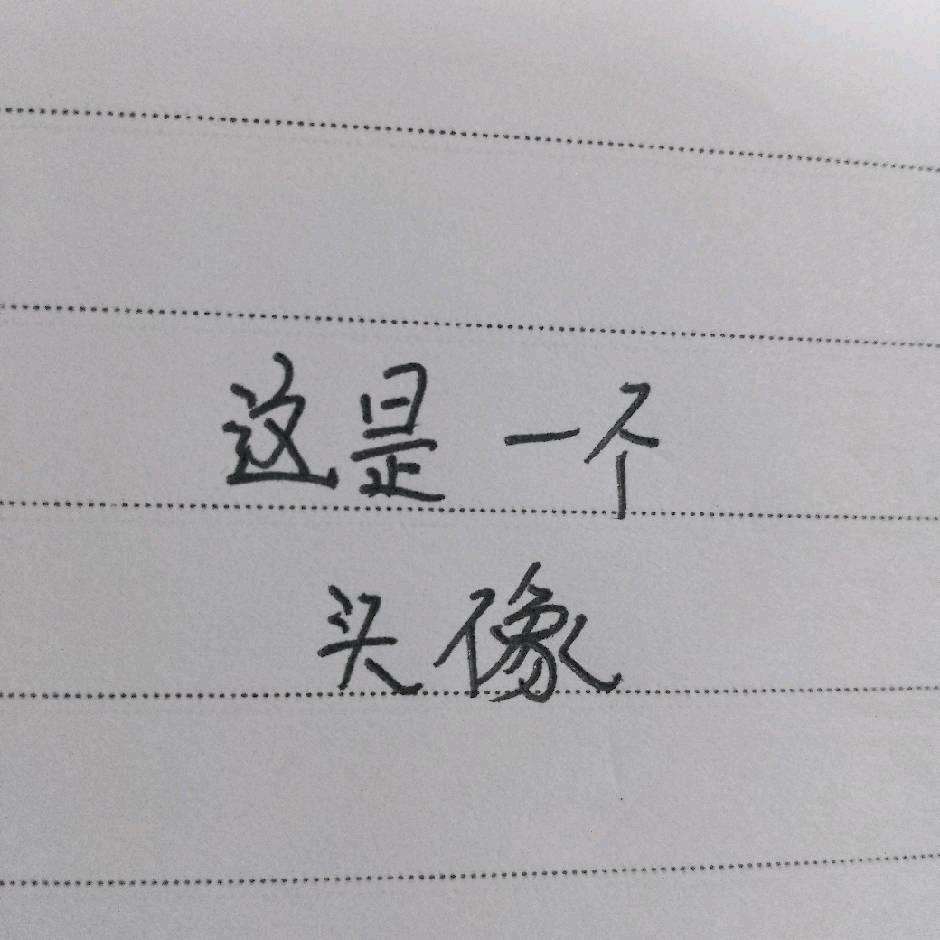 这是一个
头像